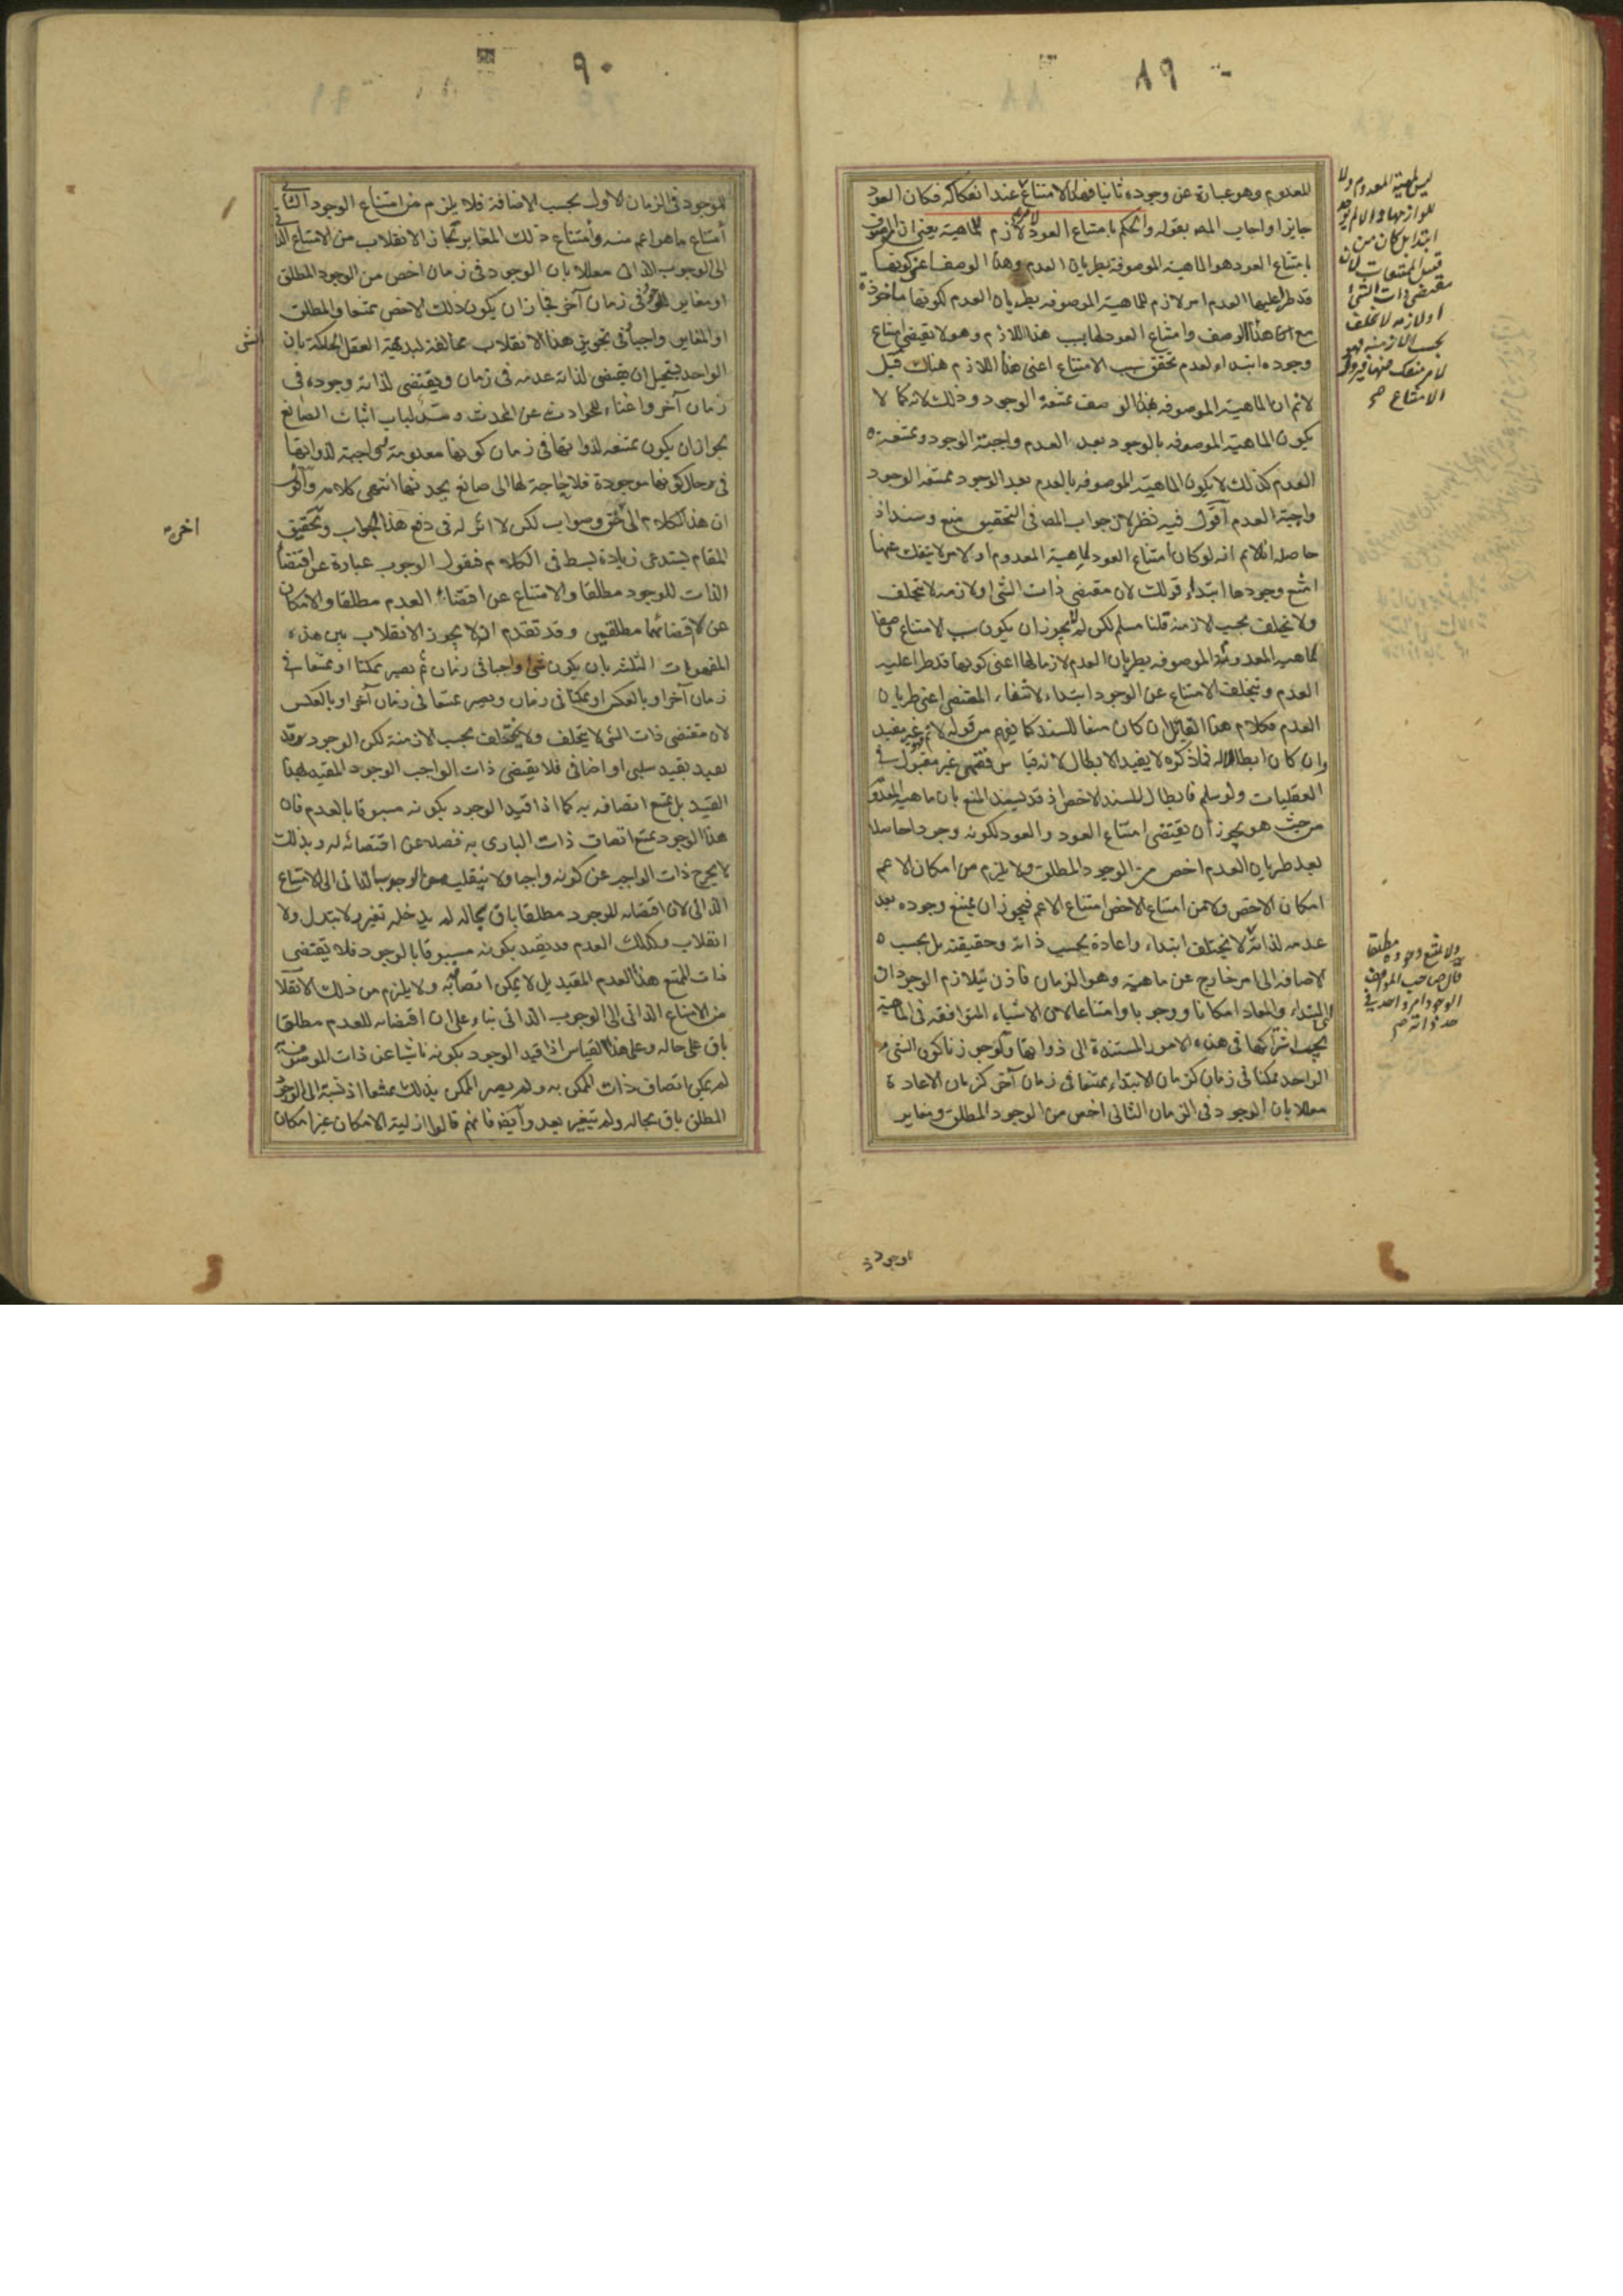 ٨٩
للمعدوم وهو عبارة عن وجوده ثانيا فهذا الامتناع عند انفكاكه فكان العود
جايزا واجاب المص بقوله والحكم بامتناع العود لامر لازم للماهية يعنى ان الموصوف
بامتناع العود هو الماهية الموصوفة بطريان العدم وهذا الوصف اعنى كونها
قد طرأ عليها العدم امر لازم للماهية الموصوفه بطريان العدم لكونها ماخوذة
مع هذا الوصف وامتناع العود لها بسبب هذا اللازم وهو لا يقتضى امتناع
وجوده ابتداء لعدم تحقق سبب الامتناع اعنى هذا اللازم هناك قيل
لانم ان الماهية الموصوفه بهذا الوصف ممتنعة الوجود وذلك لانه كما لا
يكون الماهية الموصوفه بالوجود بعد العدم واجبة الوجود وممتنعة
العدم كذلك لا يكون الماهية الموصوفه بالعدم بعد الوجود ممتنعة الوجود
واجبة العدم اقول فيه نظر لان جواب المص فى التحقيق منع وسند اذ
حاصله انا لانم انه لو كان امتناع العود لماهية المعدوم او لامر لا ينفك عنها
امتنع وجودها ابتداء قولك لان مقتضى ذات الشئ او لازمه لا تتخلف
ولا تختلف بحسب الازمنة قلنا مسلم لكن لم لا يجوز ان يكون سبب الامتناع وصفا
لماهية المعدوم الموصوفه بطريان العدم لازما لها اعنى كونها قد طرأ عليه
العدم ويتخلف الامتناع عن الوجود ابتداء لانتفاء المقتضى اعنى طريان
العدم فكلام هذا القائل ان كان منعا للسند كما يفهم من قوله لانم فهو غير مفيد
وان كان ابطالا له فما ذكره لا يفيد الابطال لانه قياس فقهى غير مقبول فى
العقليات ولو سلم فابطال للسند الاخص اذ قد يسند المنع بان ماهية المعدوم
من حيث هو يجوز ان يقتضى امتناع العود والعود لكونه وجودا حاصلا
بعد طريان العدم اخص من الوجود المطلق ولا يلزم من امكان الاعم
امكان الاخص ولا من امتناع الاخص امتناع الاعم فيجوز ان يمتنع وجوده بعد
عدمه لذاته لا يختلف ابتداء واعادة بحسب ذاته وحقيقته بل بحسب
الاضافه الى امر خارج عن ماهيته وهو الزمان فاذن يتلازم الوجودان
المبتداء والمعاد امكانا ووجوبا وامتناعا لان الاشياء المتوافقه فى الماهية
يجب اشتراكها فى هذه الامور المستندة الى ذواتها ولو جوزنا كون الشئ
الواحد ممكنا فى زمان كزمان الابتداء ممتنعا فى زمان آخر كزمان الاعادة
معللا بان الوجود فى الزمان الثانى اخص من الوجود المطلق ومغاير
ليس لمهية المعدوم ولا
للوازمها والا لم يوجد
ابتداء بل كان من
قبيل الممتنعات لان
مقتضى ذات الشئ
او لازمه لا تختلف
بحسب الازمنه فهو
لامر منفك عنها فيزول
الامتناع صح
ولا يمتنع وجوده مطلقا
قال صاحب المواقف
الوجود امر واحد فى
حد ذاته صح
للوجود فى
٩٠
للوجود فى الزمان الاول بحسب الاضافة فلا يلزم من امتناع الوجود الثانى
امتناع ما هو اعم منه وامتناع ذلك المغاير لجاز الانقلاب من الامتناع الذاتى
الى الوجوب الذاتى معللا بان الوجود فى زمان اخص من الوجود المطلق
او مغاير للوجود فى زمان آخر فجاز ان يكون ذلك الاخص ممتنعا والمطلق
او المغاير واجبا وفى تجويز هذا الانقلاب مخالفة لبديهة العقل الحاكمة بان
الواحد يستحيل ان يقتضى لذاته عدمه فى زمان ويقتضى لذاته وجوده فى
زمان آخر واغناء للحوادث عن المحدث وسد لباب اثبات الصانع
لجواز ان يكون ممتنعة لذواتها فى زمان كونها معدومة واجبة لذواتها
فى حال كونها موجودة فلا حاجة لها الى صانع يحدثها انتهى كلامه واقول
ان هذا الكلام حق وصواب لكن لا اثر له فى دفع هذا الجواب وتحقيق
المقام يستدعى زيادة بسط فى الكلام فنقول الوجوب عبارة عن اقتضاء
الذات للوجود مطلقا والامتناع عن اقتضاء العدم مطلقا والامكان
عن لا اقتضائهما مطلقين وقد تقدم انه لا يجوز الانقلاب بين هذه
المفهومات الثلثة بان يكون شئ واجبا فى زمان ثم يصير ممكنا او ممتنعا فى
زمان آخر او بالعكس او ممكنا فى زمان ويصير ممتنعا فى زمان آخر او بالعكس
لان مقتضى ذات الشئ لا يتخلف ولا يختلف بحسب الازمنة لكن الوجود قد
يقيد بقيد سلبى او اضافى فلا يقتضى ذات الواجب الوجود المقيد بهذا
القيد بل يمتنع اتصافه به كما اذا قيد الوجود بكونه مسبوقا بالعدم فان
هذا الوجود يمتنع اتصاف ذات البارى به فضلا عن اقتضائه له وبذلك
لا يخرج ذات الواجب عن كونه واجبا ولا ينقلب من الوجوب الذاتى الى الامتناع
الذاتى لان اقتضائه للوجود مطلقا باق بحاله لم يدخله تغير ولا تبدل ولا
انقلاب وكذلك العدم قد يقيد بكونه مسبوقا بالوجود فلا يقتضى
ذات الممتنع هذا العدم المقيد بل لا يمكن اتصافه به ولا يلزم من ذلك الانقلاب
من الامتناع الذاتى الى الوجوب الذاتى بناء على ان اقتضائه للعدم مطلقا
باق على حاله وعلى هذا القياس اذا قيد الوجود بكونه ناشيا عن ذات الموصوف
لم يمكن اتصاف ذات الممكن به ولم يصير الممكن بذلك ممتنعا اذ نسبة الى الوجود
المطلق باق بحاله ولم يتغير بعد وايضا فانهم قالوا ازلية الامكان غير امكان
الشى
اخره